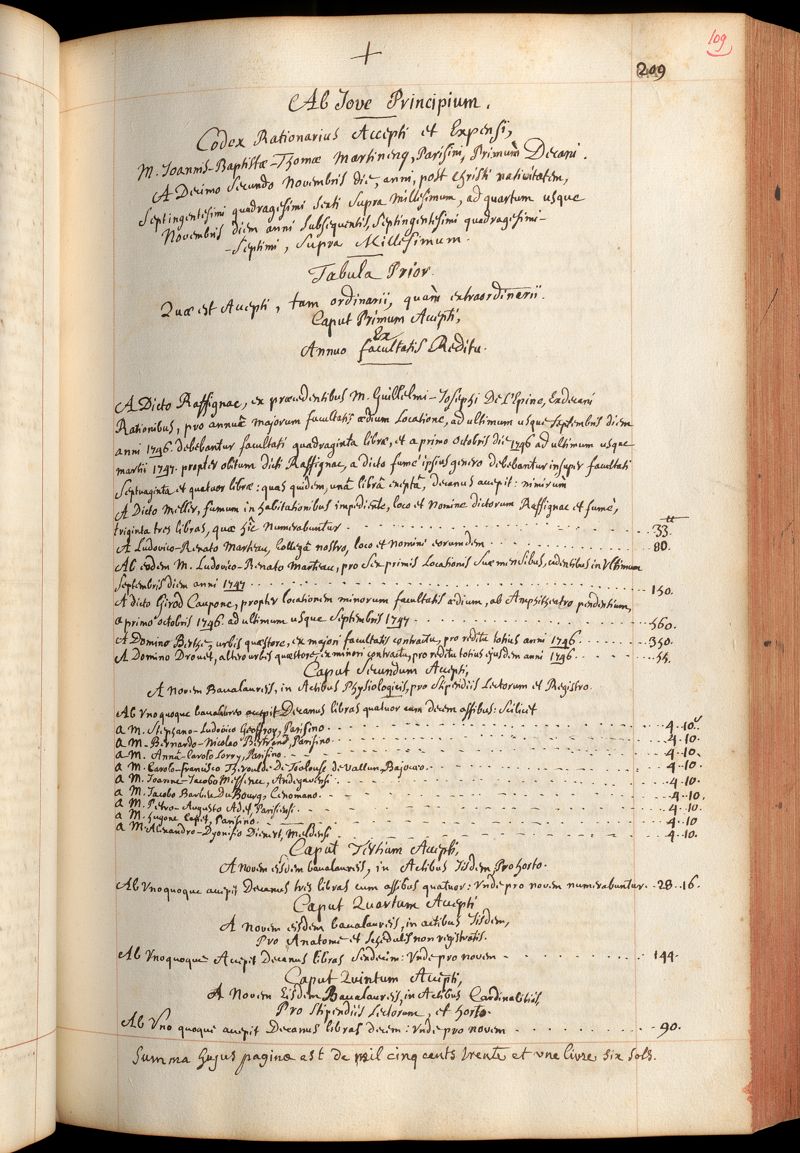 109
+
209
Ab Jove Principium.
Codex Rationarius Accepti et Expensi,
M. Joannis-Baptistæ-Thomæ Martinenq, Parisini, Primùm Decani.
A Decimo Secundo Novembris die, anni, post Christi nativitatem,
Septingentesimi quadragesimi sexti supra millesimum, ad quartum usque
Novembris diem anni subsequentis, Septingentesimi quadragesimi-
-septimi, supra Millesimum.
Tabula Prior.
Quæ est Accepti, tam ordinarii, quàm extraordinarii.
Caput Primum Accepti,
Ex
Annuo facultatis Reditu.
A Dicto Raffignac, ex præcedentibus M. Guillelmi-Josephi De L'Epine, Exdecani
Rationibus, pro annuâ majorum facultatis ædium Locatione, ad ultimum usque septembris diem
anni 1746. debebantur facultati quadraginta libræ, et a primo octobris die 1746 ad ultimum usque
martii 1747. propter obitum dicti Raffignac, a dicto fumé ipsius genero debebantur insuper facultati
septuaginta et quatuor libræ: quas quidem, unâ librâ exeptâ, decanus accepit: nimirùm
A Dicto Mellier, fumum in habitationibus impediente, loco et nomine dictorum Raffignac et fumé,
triginta tres libras, quæ hîc numerabuntur . . . 33.
A Ludovico-Renato Marteau, Collegâ nostro, loco et nomine eorumdem . . . 80.
Ab eodem M. Ludovico-Renato Marteau, pro sex primis Locationis suæ mensibus, cadentibus in Ultimum
septembris diem anni 1747 . . . 150.
A dicto Girod Caupone, propter locationem minorum facultatis ædium, ab Amphitheatro pendentium,
a primo octobris 1746. ad ultimum usque septembris 1747 . . . 560.
A Domino Berthe, urbis quæstore, ex majori facultatis contractu, pro reditu totius anni 1746 . . . 350.
A Domino Drouet, altero urbis quæstore, ex minori contractu, pro reditu totius ejusdem anni 1746 . . . 55.
Caput Secundum Accepti,
A novem Baccalaureis, in Actibus Physiologicis, pro stipendiis Lectorum et Registro.
Ab Unoquoque baccalaureo accepit Decanus libras quatuor cum decem assibus: Scilicet
a M. Stephano-Ludovico Geoffroy, Parisino . . . 4. 10.
a M. Bernardo-Nicolao Bertrand, Parisino . . . 4. 10.
a M. Annâ-Carolo Lorry, Parisino . . . 4. 10.
a M. Carolo-francisco Theroulde de Vallun, Bajoceo . . . 4. 10.
a M. Joanne-Jacobo Messence, Andegavensi . . . 4. 10.
a M. Jacobo Barbeu Du Bourg, Cenomano . . . 4. 10.
a M. Petro-Augusto Adet, Parisiensi . . . 4. 10.
a M. Hugone Capet, Parisino . . . 4. 10
a M. Alexandro-Dyonisio Dienert, Meldensi . . . 4. 10.
Caput Tertium Accepti,
A novem eisdem baccalaureis, in Actibus Iisdem, Pro horto.
Ab Unoquoque accepit Decanus tres libras cum assibus quatuor: Unde pro novem numerabuntur . . 28 .. 16.
Caput Quartum Accepti
A novem eisdem baccalaureis, in actibus Iisdem,
Pro Anatome et schedulis non registratis.
Ab Unoquoque Accepit Decanus libras sexdecim: Unde pro novem . . . 144.
Caput Quintum Accepti,
A Novem Eisdem Baccalaureis, in Actibus Cardinalitiis,
Pro stipendiis Lectorum, et horto.
Ab Uno quoque accepit Decanus libras decem: Unde pro novem . . . 90.
Summa hujus paginæ est de mil cinq cents trente et une livre six sols.